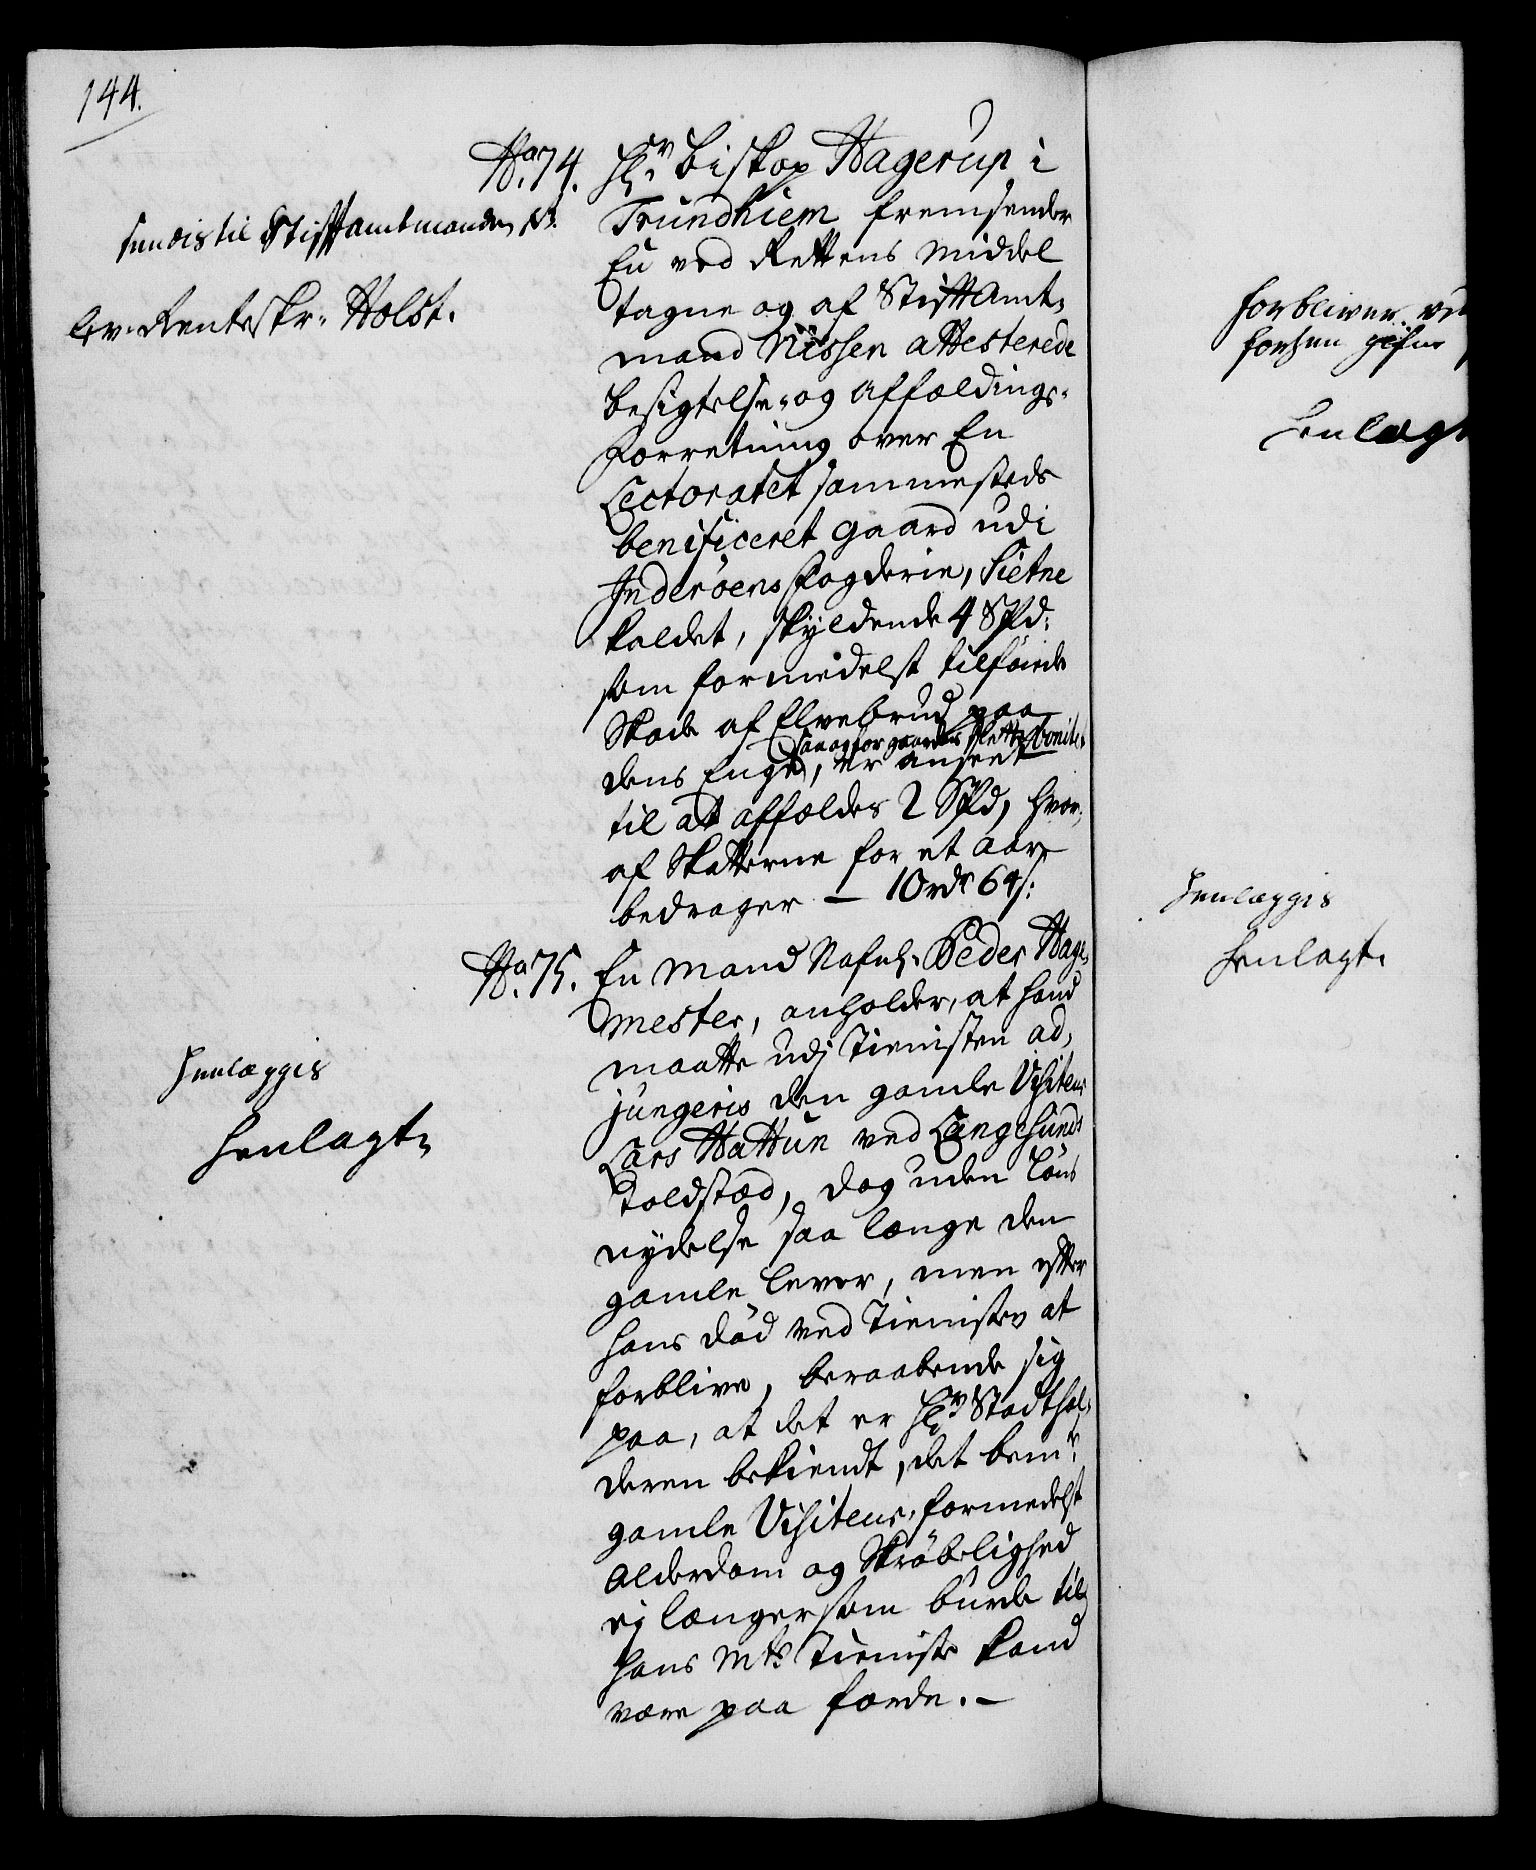 144.
No. 74. Hr. Biskop Hagerup i
Trundhiem fremsender
En ved Rettens Middel
tagne og af StiftAmt-
mand Nissen attesterede
besigtelse- og affældings-
Forretning over En
Lectoratet sammesteds
benificeret gaard udi
Inderöens Fogderie, Sietne
kaldet, skyldende 4 Spd:
som formedelst tilföiede
Skade af Elvebrud paa
saa og for gaardens slette bonitet
dens Enge, er anseet
til at affældes 2 Spd, hvor-
af Skatterne for et aar
bedrager — 10 rdr 64 s:
sendis til Stiftamtmanden
lev: Renteskr. Holst.
No. 75. En Mand Nafnl. Peder Hage-
mester, anholder, at hand
maatte udj Tienisten ad-
jungeris den gamle Visiteur
Lars Hattun ved Langesunds
Toldstæd, dog uden Löns
nydelse saa længe den
gamle lever, men efter
hans död ved Tienisten at
forblive, beraabende sig
paa, at det er Hr. Stadthol-
deren bekiendt, det bemte
gamle Visiteur, formedelst
Alderdom og Skröbelighed
ej længer som burde til
hans Mts Tieniste kand
være paa færde. —
Henlægges
Henlagt.
forbliver ved
forhen gifne
Henlagt
Henlægges
Henlagt.